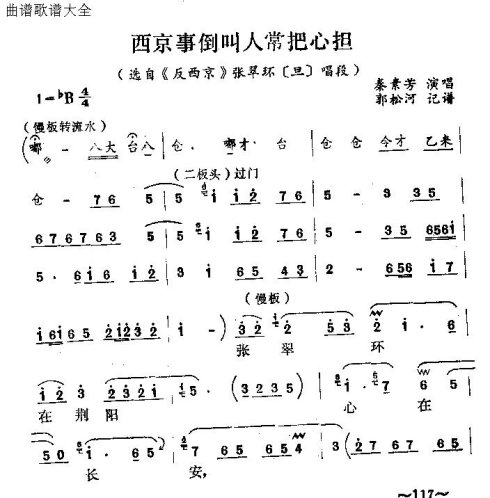 曲谱歌谱大全
西京事倒叫人常把心担
(选自《反西京》张翠环〔旦〕唱段)
1=♭B 4/4
秦素芳 演唱
郭松河 记谱
(慢板转流水)
(嘟 - 八大 台八 仓. 嘟才 台 仓 仓 令才 乙来
(二板头)过门
仓 - 76 5 5 i i2 5 - 3 35
676763 5 5 i i2 5 - 35 656i
5. 6i6 i2 3 i 65 43 2 - 656 i7
(慢板)
i6i65 2i232 i - ) 32 i2 53 2 i. 6
张 翠 环
i2 3 232i2i i5. (3235) i. 7 6 5
在荆阳 心 在
- 5 0 B i. 65 7 65 654 3 (2 7 67 65
长 安,
~117~